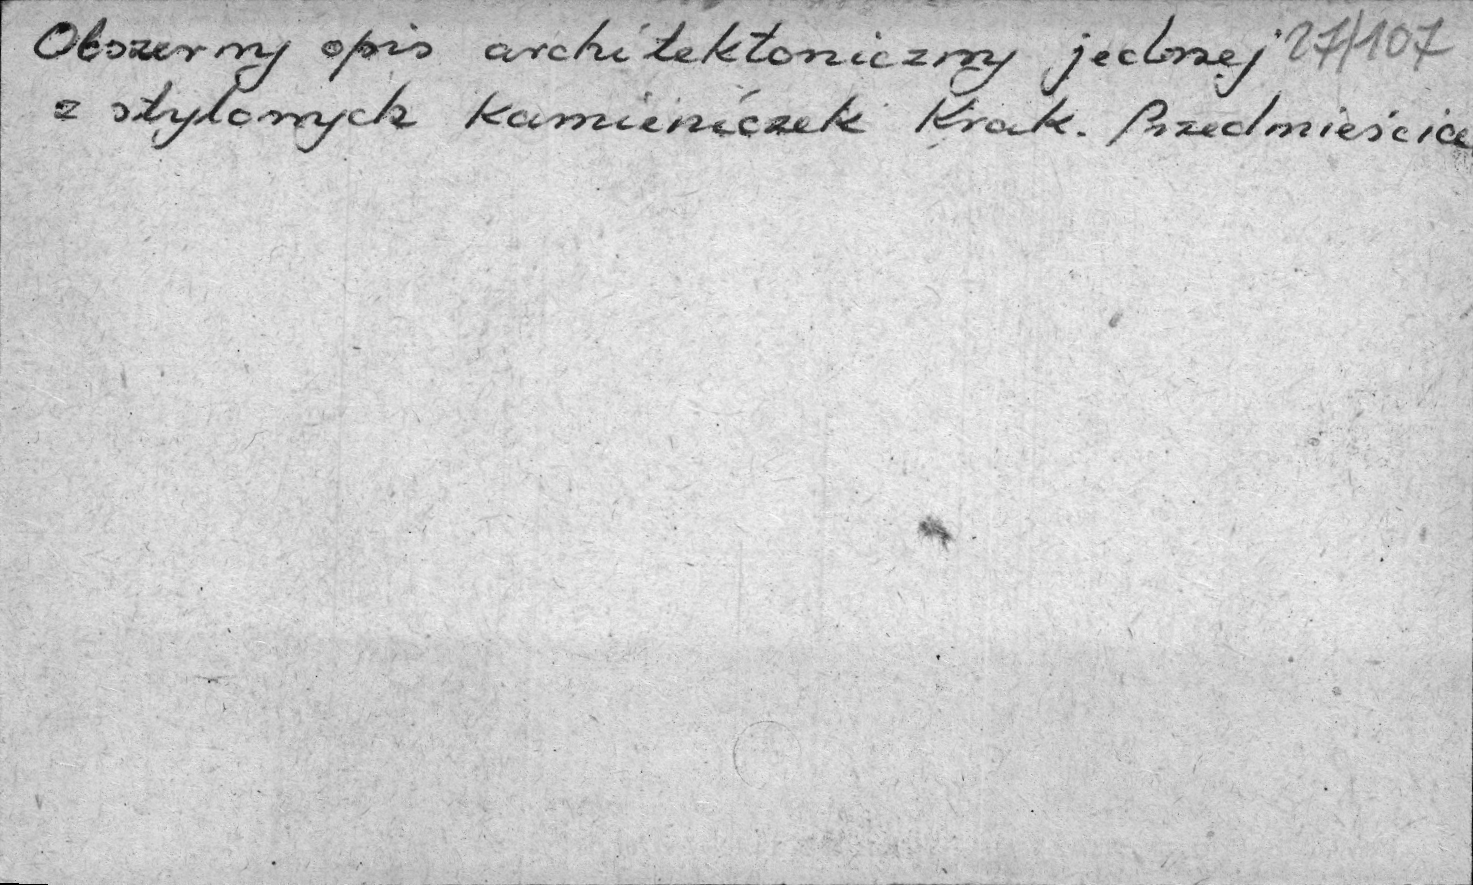 Obszerny opis architektoniczny jednej 27/107
z stylowych kamieniczek Krak. Przedmieścia